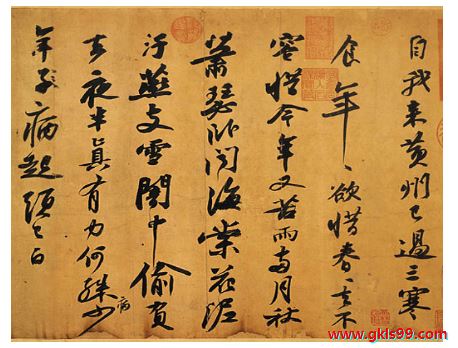 自我来黃州已過三寒
食年〻欲惜春〻去不
容惜今年又苦雨兩月秋
蕭瑟卧聞海棠花泥
汙燕支雪闇中偷負
去夜半真有力何殊少病
年子病起頭已白
www.gkls99.com